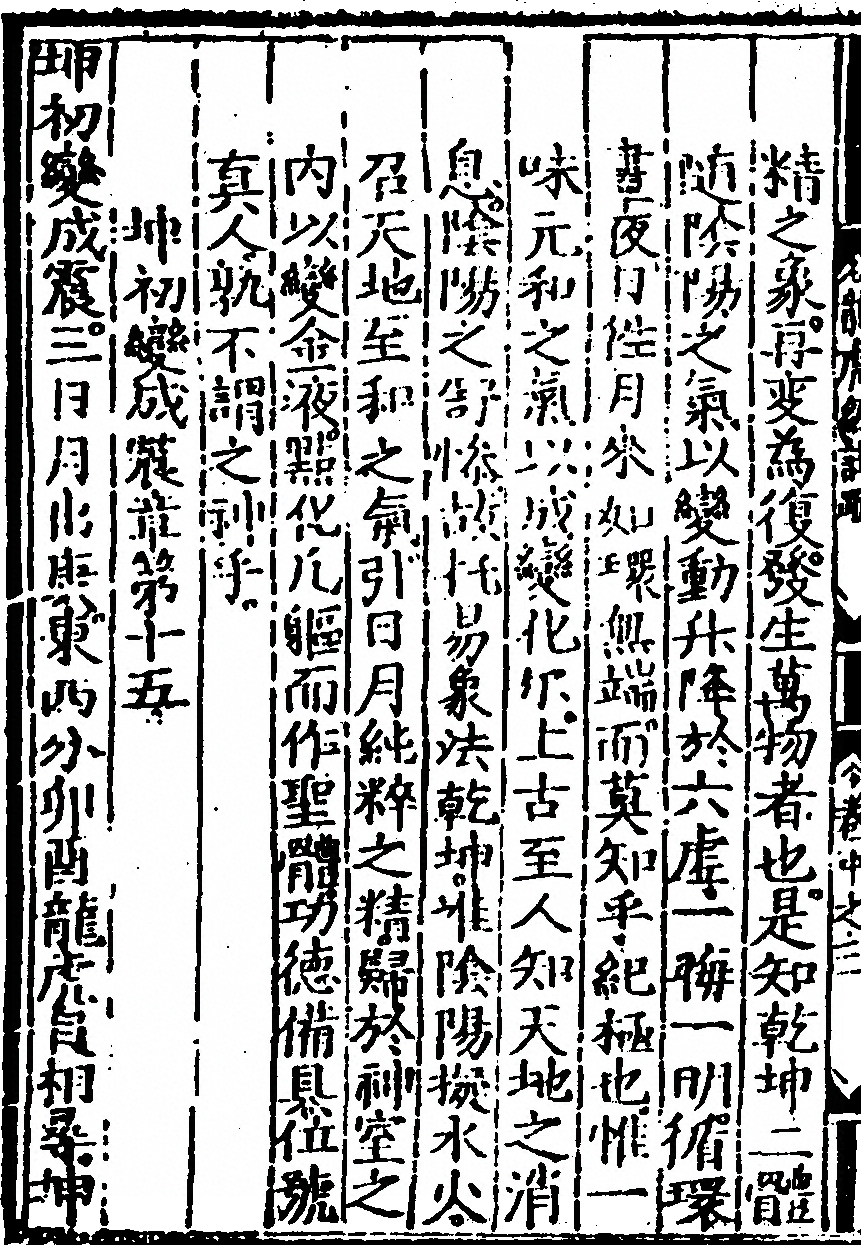 精之象再変為復發生萬物者也是知乾坤二體
随陰陽之氣以變動升降於六虚一晦一明循環
晝夜日徃月來如環無端而莫知乎紀極也惟一
味元和之氣以成變化尔上古至人知天地之消
息陰陽之舒惨故托易象法乾坤唯陰陽擬水火
召天地至和之氣引日月純粹之精歸於神室之
内以變金液點化凡軀而作聖體功德備具位號
真人孰不謂之神乎
坤初變成震章第十五
坤初變成震三日月出庚東西分卯酉龍虎自相尋坤
卷中之三